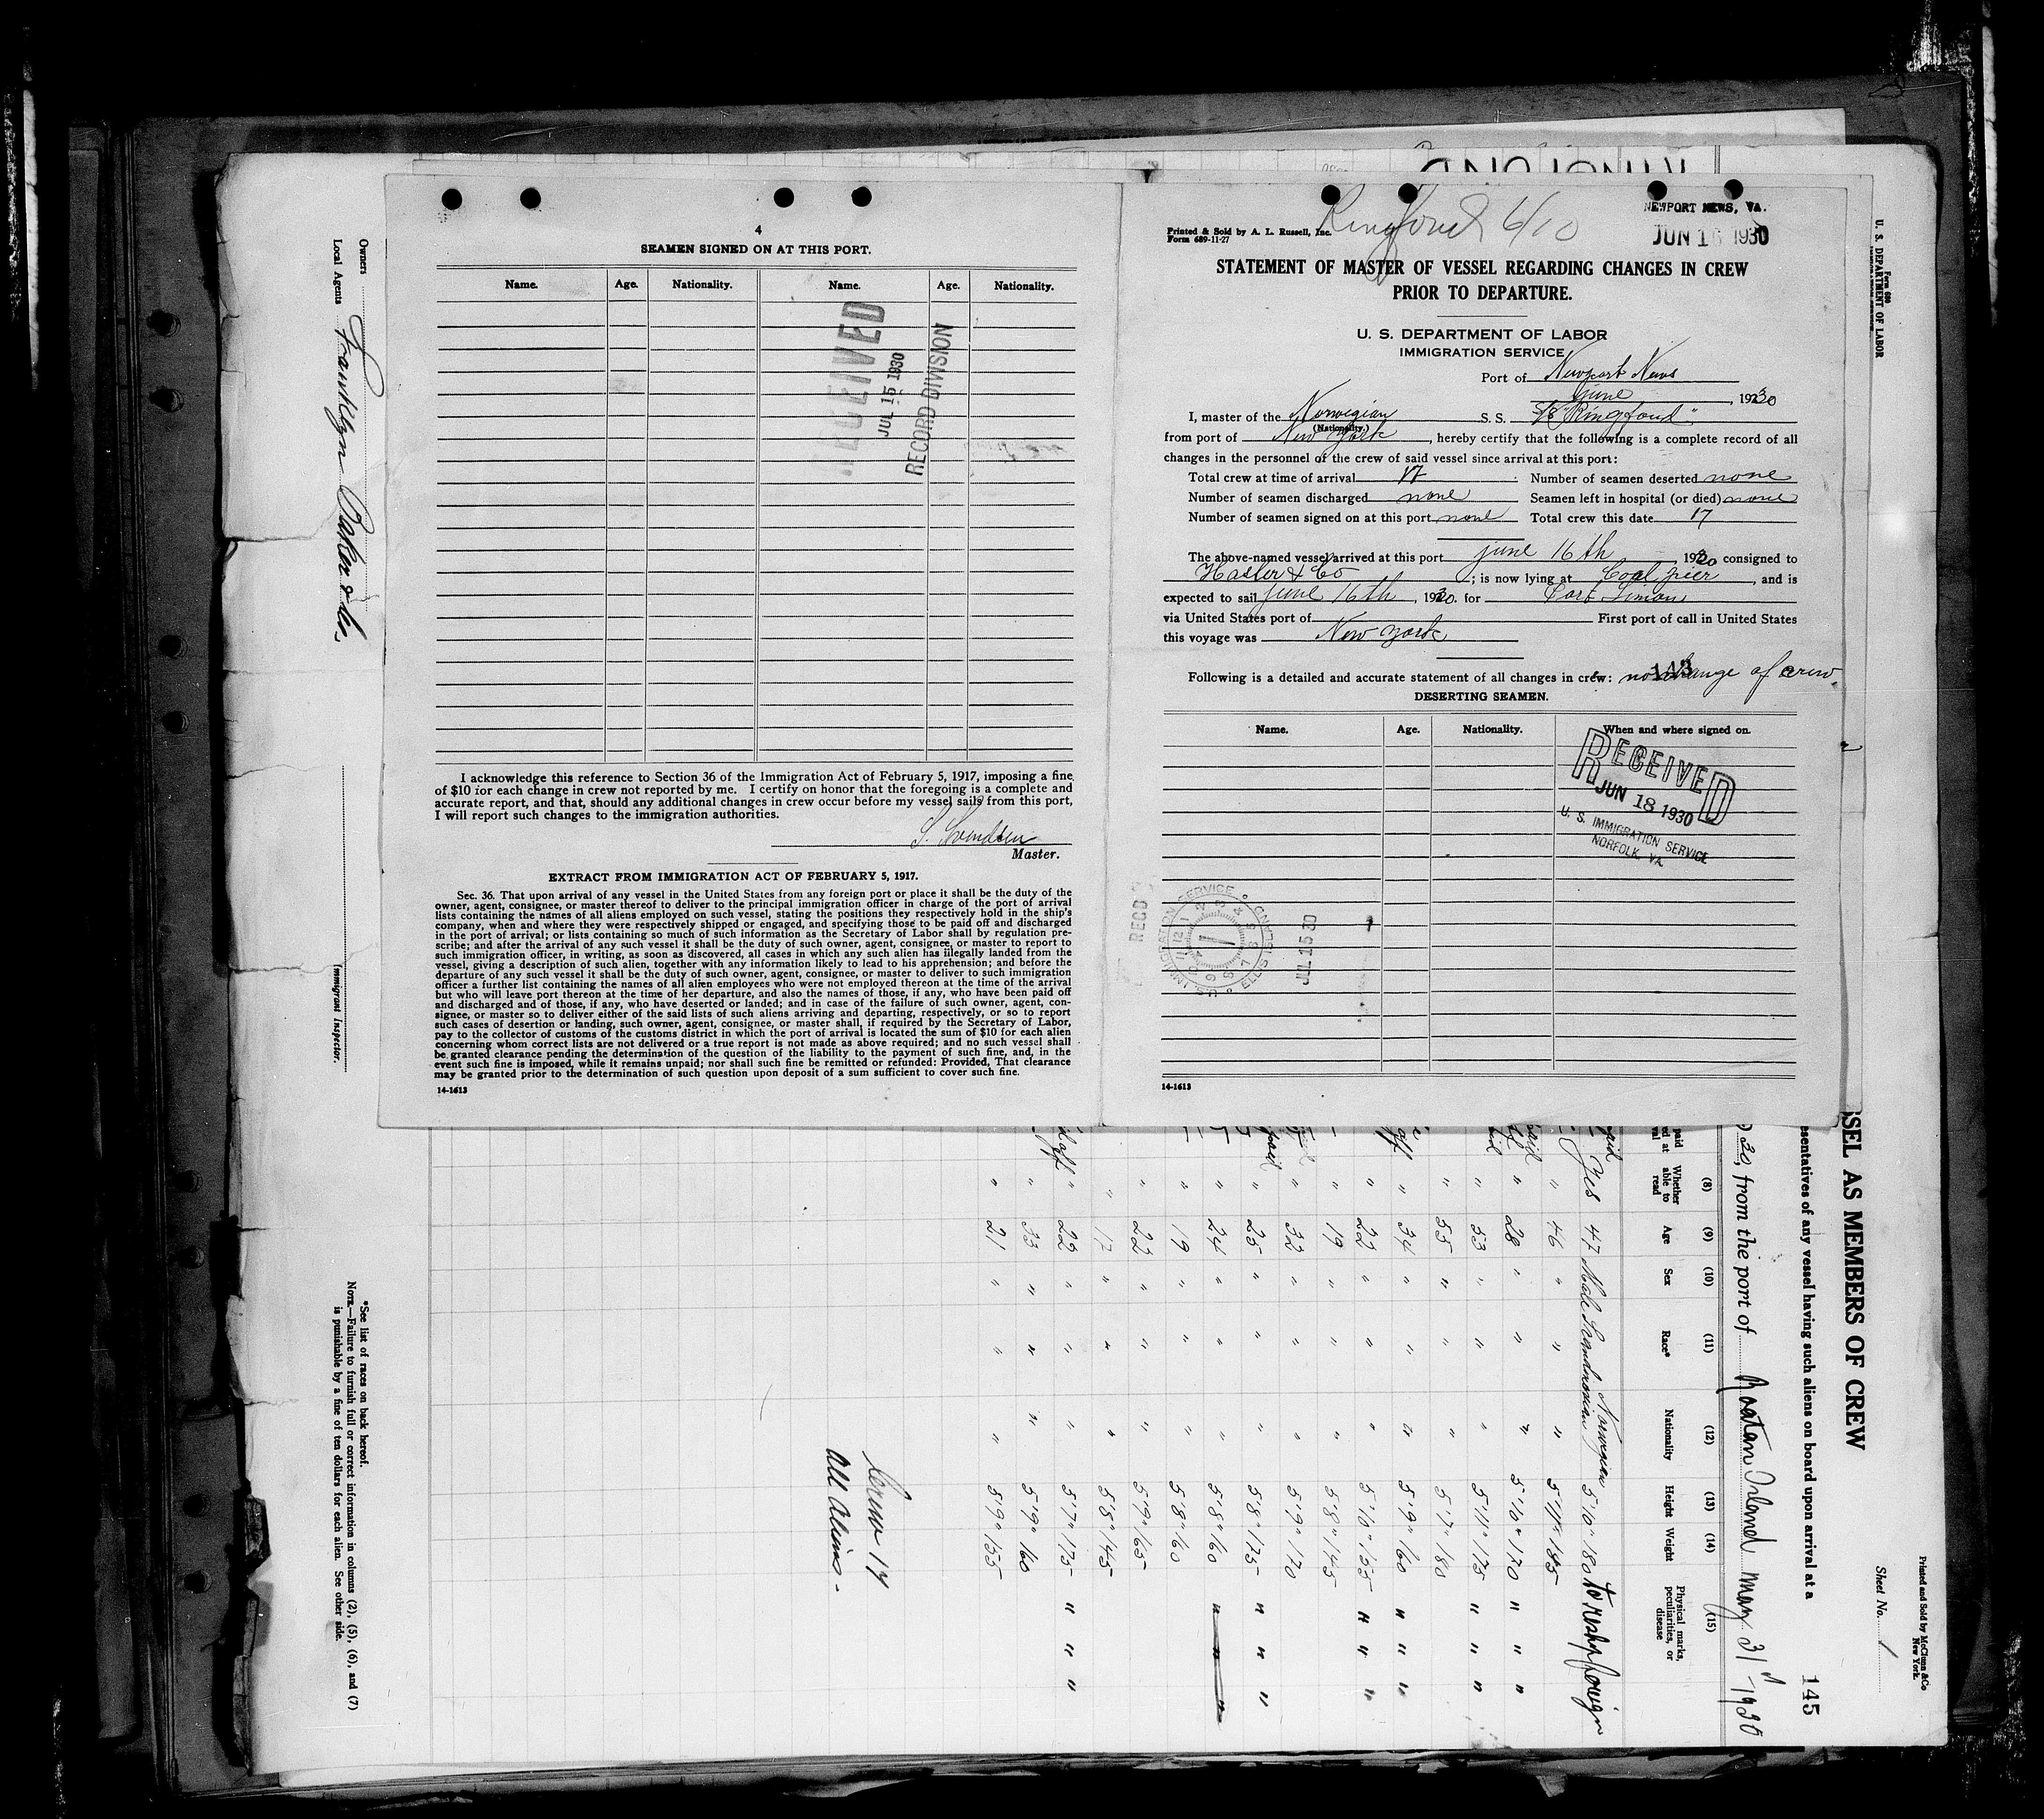 4
SEAMEN SIGNED ON AT THIS PORT.
Name. Age. Nationality. Name. Age. Nationality.
RECEIVED
JUL 15 1930
RECORD DIVISION
I acknowledge this reference to Section 36 of the Immigration Act of February 5, 1917, imposing a fine
of $10 for each change in crew not reported by me. I certify on honor that the foregoing is a complete and
accurate report, and that, should any additional changes in crew occur before my vessel sails from this port,
I will report such changes to the immigration authorities.
S. Svendsen
Master.
EXTRACT FROM IMMIGRATION ACT OF FEBRUARY 5, 1917.
Sec. 36. That upon arrival of any vessel in the United States from any foreign port or place it shall be the duty of the
owner, agent, consignee, or master thereof to deliver to the principal immigration officer in charge of the port of arrival
lists containing the names of all aliens employed on such vessel, stating the positions they respectively hold in the ship's
company, when and where they were respectively shipped or engaged, and specifying those to be paid off and discharged
in the port of arrival; or lists containing so much of such information as the Secretary of Labor shall by regulation pre-
scribe; and after the arrival of any such vessel it shall be the duty of such owner, agent, consignee, or master to report to
such immigration officer, in writing, as soon as discovered, all cases in which any such alien has illegally landed from the
vessel, giving a description of such alien, together with any information likely to lead to his apprehension; and before the
departure of any such vessel it shall be the duty of such owner, agent, consignee, or master to deliver to such immigration
officer a further list containing the names of all alien employees who were not employed thereon at the time of the arrival
but who will leave port thereon at the time of her departure, and also the names of those, if any, who have been paid off
and discharged and of those, if any, who have deserted or landed; and in case of the failure of such owner, agent, con-
signee, or master so to deliver either of the said lists of such aliens arriving and departing, respectively, or so to report
such cases of desertion or landing, such owner, agent, consignee, or master shall, if required by the Secretary of Labor,
pay to the collector of customs of the customs district in which the port of arrival is located the sum of $10 for each alien
concerning whom correct lists are not delivered or a true report is not made as above required; and no such vessel shall
be granted clearance pending the determination of the question of the liability to the payment of such fine, and, in the
event such fine is imposed, while it remains unpaid; nor shall such fine be remitted or refunded: Provided, That clearance
may be granted prior to the determination of such question upon deposit of a sum sufficient to cover such fine.
14-1613
Ringfond 6/10
NEWPORT NEWS, VA.
JUN 16 1930
Printed & Sold by A. L. Russell, Inc.
Form 689-11-27
STATEMENT OF MASTER OF VESSEL REGARDING CHANGES IN CREW
PRIOR TO DEPARTURE.
U. S. DEPARTMENT OF LABOR
IMMIGRATION SERVICE
Port of Newport News
june, 1930
I, master of the Norwegian S. S. S/S "Ringfond"
(Nationality.)
from port of New York, hereby certify that the following is a complete record of all
changes in the personnel of the crew of said vessel since arrival at this port:
Total crew at time of arrival 17 Number of seamen deserted none
Number of seamen discharged none Seamen left in hospital (or died) none
Number of seamen signed on at this port none Total crew this date 17
The above-named vessel arrived at this port june 16th 1930 consigned to
Hasler & Co; is now lying at Coal pier, and is
expected to sail june 16th, 1930. for Port Limon
via United States port of First port of call in United States
this voyage was New York
Following is a detailed and accurate statement of all changes in crew: no change of crew.
DESERTING SEAMEN.
Name. Age. Nationality. When and where signed on.
RECEIVED
JUN 18 1930
U. S. IMMIGRATION SERVICE
NORFOLK, VA.
REC'D
U.S. IMMIGRATION SERVICE ELLIS ISLAND
JUL 15 30
14-1613
Form 689
U. S. DEPARTMENT OF LABOR
Printed and Sold by McClunn & Co
New York.
Sheet No. 1
SSEL AS MEMBERS OF CREW
esentatives of any vessel having such aliens on board upon arrival at a
145
30, from the port of Roatan Island May 31st 1930
(8) (9) (10) (11) (12) (13) (14) (15)
Whether able to read Age Sex Race* Nationality Height Weight Physical marks, peculiarities, or disease
Yes 47 Male Scandinavian Norwegian 5'10" 180 to reship foreign
" 46 " " " 5'11" 185
" 28 " " " 5'10" 170 " " "
" 53 " " " 5'11" 175 " " "
" 55 " " " 5'7" 180
" 34 " " " 5'9" 160 " " "
" 22 " " " 5'10" 155 " " "
" 19 " " " 5'8" 145
" 32 " " " 5'9" 170
" 25 " " " 5'8" 175 " " "
" 24 " " " 5'8" 160 " " "
" 19 " " " 5'8" 160
" 22 " " " 5'9" 165
" 17 " " " 5'8" 145
" 22 " " " 5'7" 175 " " "
" 33 " " " 5'9" 160
" 21 " " " 5'9" 155
All Aliens.
Owners
Local Agents Franklyn Baker & Co.
Immigrant Inspector.
*See list of races on back hereof.
NOTE.—Failure to furnish full or correct information in columns (2), (5), (6), and (7)
is punishable by a fine of ten dollars for each alien. See other side.